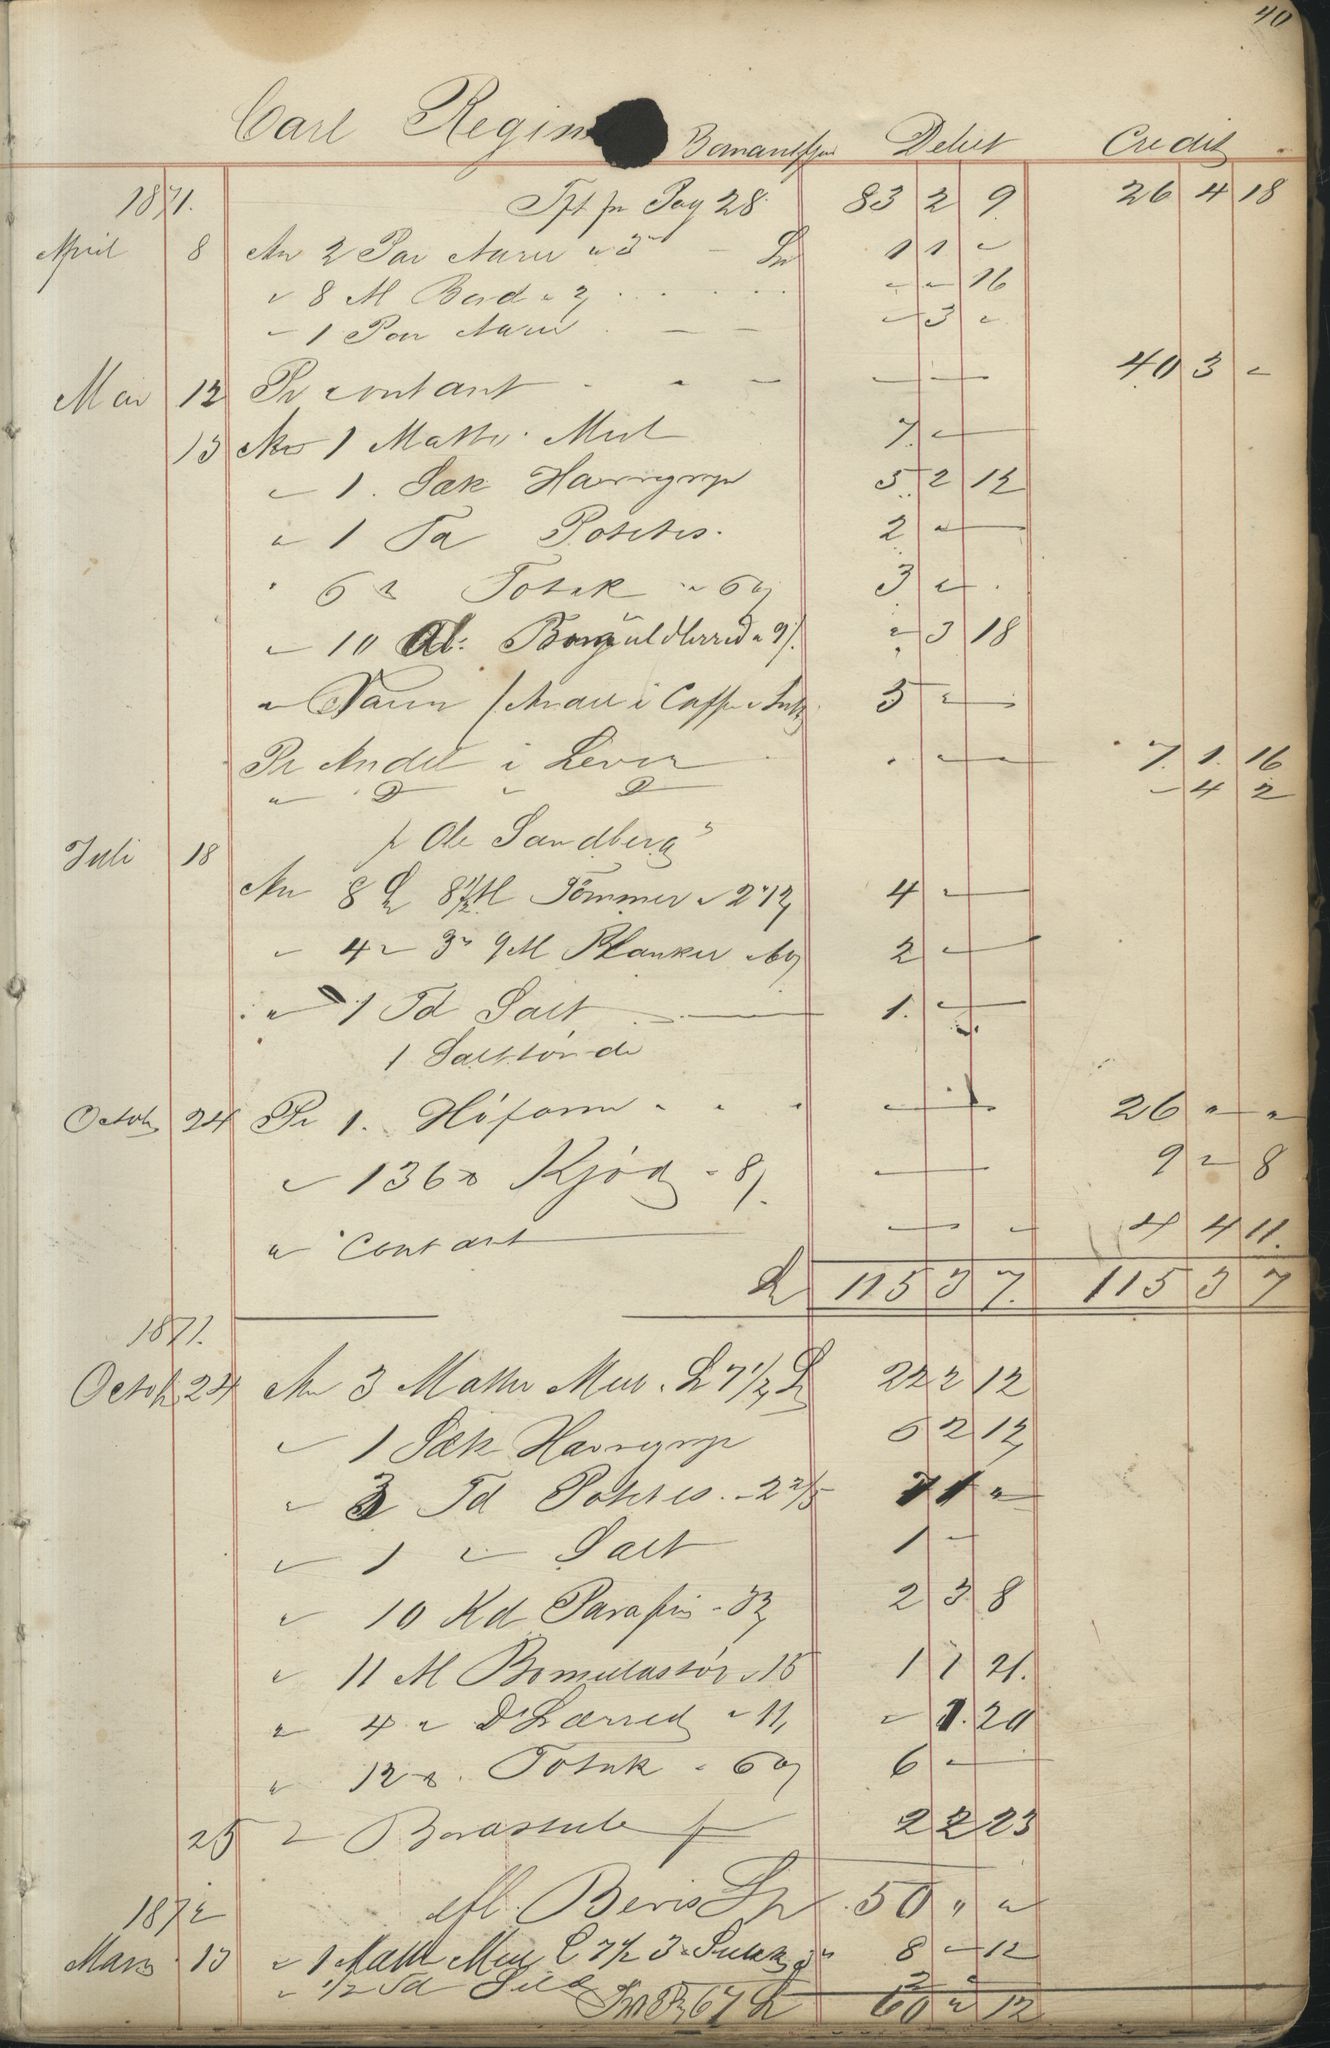 40
Carl Regin Bomansfjor Debet Credit
1871. Tpt fr Pag 28 83 2 9 26 4 18
April 8 An 2 Par Aarer a 3 - Sp 1 1 "
" 8 Al Bord a 2 " " 16
" 1 Par Aarer " 3 "
Mai 12 Pr contant 40 3 "
13 An 1 Matte Meel 7 "
" 1 Sæk Havregryn 5 2 12
" 1 Td Potetes. 2 "
" 6 Tobak a 60 3 "
" 10 Al: Bomuldlerred a 9 " 3 18
" Varer / Andel i Caffe 5 "
Pr Andel i Lever 7 1 16
" D " D " 4 2
p Ole Sandberg
Juli 18
An 8 8 1/2 Al Tømmer a 2"12 4 "
" 4 " 3 " 9 Al Planker a 60 2 "
" 1 Td Salt 1 "
1 Salttønde
Octob 24 Pr 1. Høfarm 26 " "
" 136 Kjød a 8 9 " 8
" Contant 4 4 11
Sp 115 3 7 115 3 7
1871.
Octob 24 An 3 Matter Meel a 7 1/2 Sp 22 2 12
" 1 Sæk Havregryn 5 2 12
" 3 Td Potetes. a 2 2/5 7 1 "
" 1 " Salt 1 "
" 10 Kd Parafin a 32 2 3 8
" 11 Al Bomuldstøi a 15 1 1 21
" 4 " D Lærred a 11 " 1 20
" 12 Tobak a 60 6 "
25 " 2 2 23
efl. Bevis Sp 50 " "
1872
Mars 13 " 1 Matte Meel 7 1/2 3 8 " 12
" 1/2 Td Sild 2 "
Pag 67 Sp 60 " 12